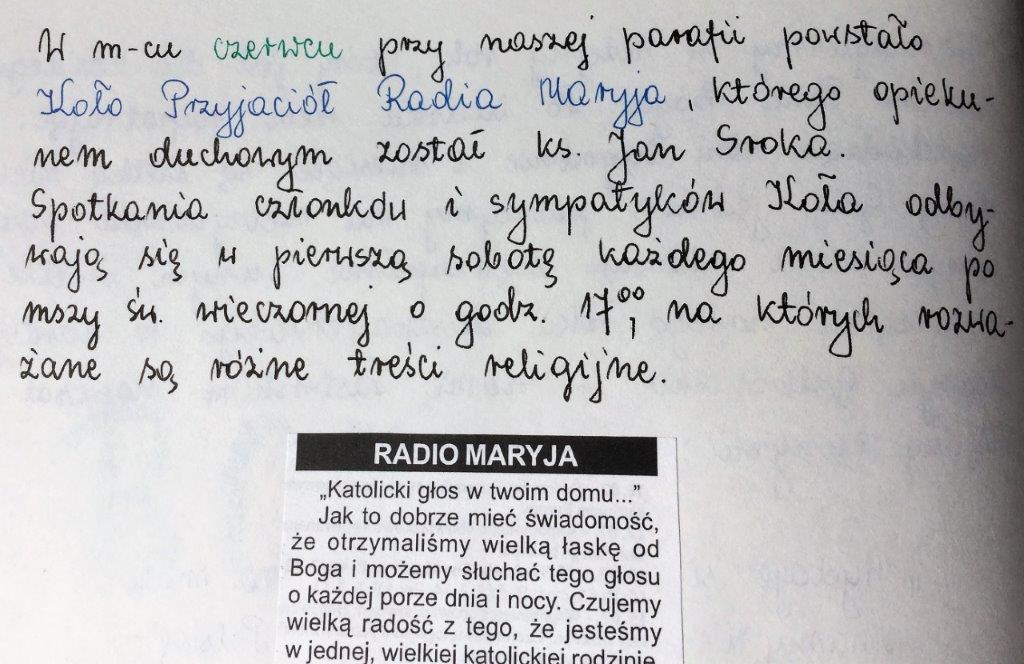 W m-cu czerwcu przy naszej parafii powstało
Koło Przyjaciół Radia Maryja, którego opieku-
nem duchowym został ks. Jan Sroka.
Spotkania członków i sympatyków Koła odby-
wają się w pierwszą sobotę każdego miesiąca po
mszy św. wieczornej o godz. 17⁰⁰, na których rozwa-
żane są różne treści religijne.
RADIO MARYJA
„Katolicki głos w twoim domu...”
Jak to dobrze mieć świadomość,
że otrzymaliśmy wielką łaskę od
Boga i możemy słuchać tego głosu
o każdej porze dnia i nocy. Czujemy
wielką radość z tego, że jesteśmy
w jednej, wielkiej katolickiej rodzinie